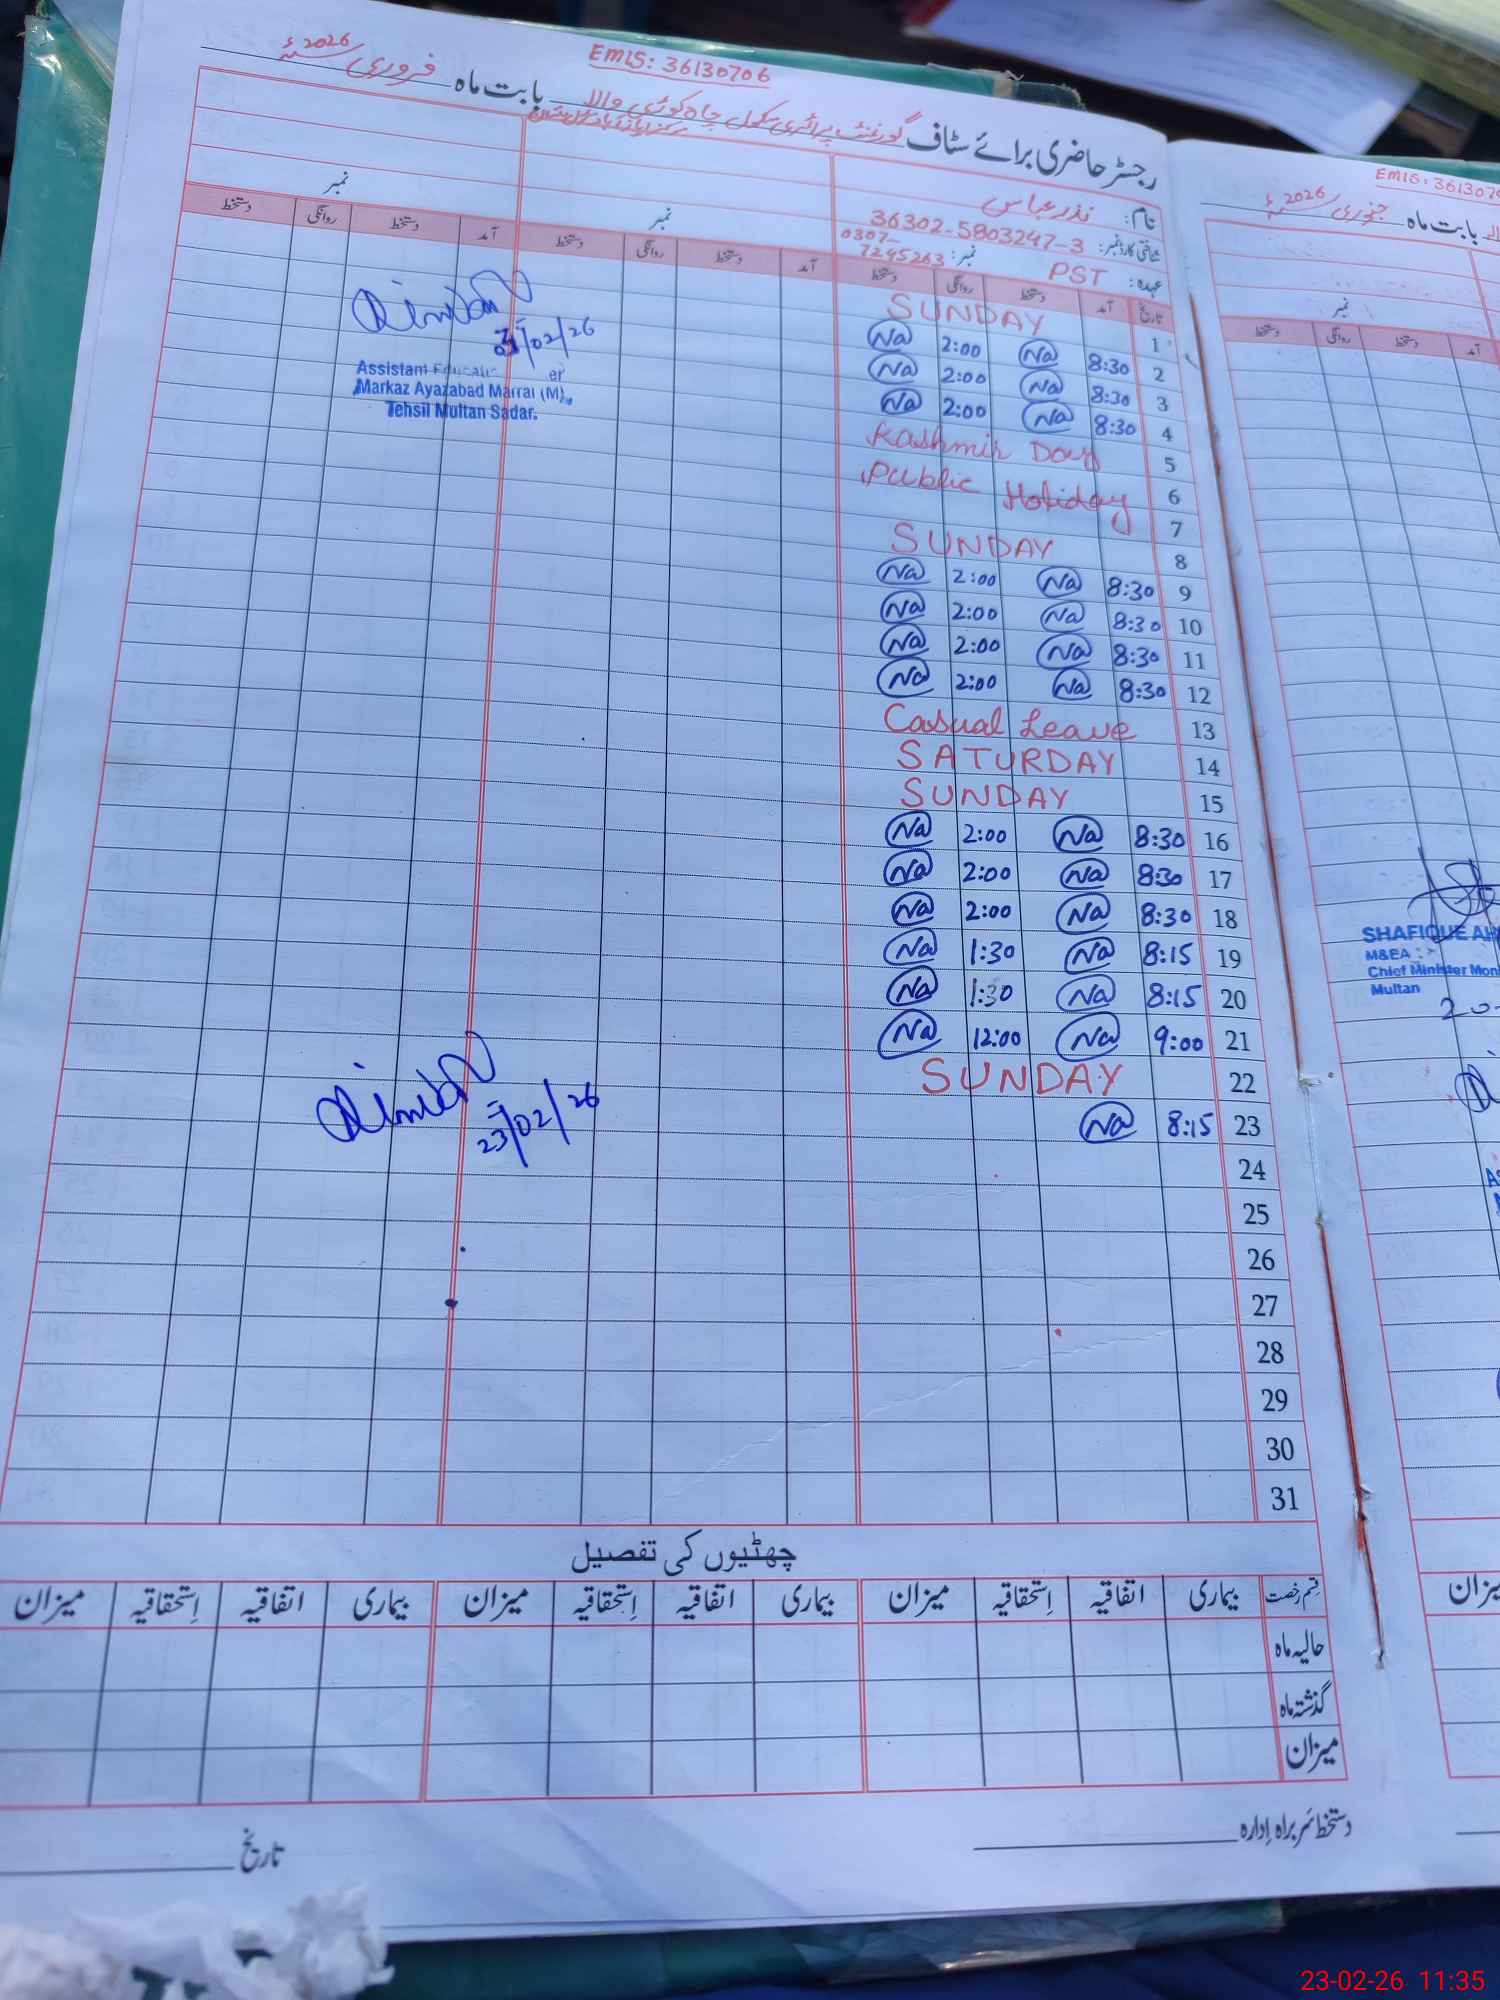 EMIS: 36130706
رجسٹر حاضری برائے سٹاف گورنمنٹ پرائمری سکول چاہ کوڑے والا بابت ماہ فروری 2026ء
نام: نذر عباس
شناختی کارڈ نمبر: 36302-5803247-3
نمبر: 0307-7245263
عہدہ: PST
نمبر
نمبر
تاریخ آمد دستخط روانگی دستخط آمد دستخط روانگی دستخط آمد دستخط روانگی دستخط
1 SUNDAY
2 8:30 Na 2:00 Na
3 8:30 Na 2:00 Na
4 8:30 Na 2:00 Na
5 Kashmir Day
6 Public Holiday
7
8 SUNDAY
9 8:30 Na 2:00 Na
10 8:30 Na 2:00 Na
11 8:30 Na 2:00 Na
12 8:30 Na 2:00 Na
13 Casual Leave
14 SATURDAY
15 SUNDAY
16 8:30 Na 2:00 Na
17 8:30 Na 2:00 Na
18 8:30 Na 2:00 Na
19 8:15 Na 1:30 Na
20 8:15 Na 1:30 Na
21 9:00 Na 12:00 Na
22 SUNDAY
23 8:15 Na
24
25
26
27
28
29
30
31
/02/26
Assistant
Markaz Ayazabad Marral (M),
Tehsil Multan Sadar.
23/02/26
چھٹیوں کی تفصیل
قسم رخصت بیماری اتفاقیہ استحقاقیہ میزان بیماری اتفاقیہ استحقاقیہ میزان بیماری اتفاقیہ استحقاقیہ میزان
حالیہ ماہ
گذشتہ ماہ
میزان
دستخط سربراہ ادارہ
تاریخ
EMIS: 3613070
بابت ماہ جنوری 2026ء
نمبر
آمد دستخط روانگی دستخط
SHAFIQUE
M&EA
Chief Minister Mon
Multan
20-
میزان
23-02-26 11:35